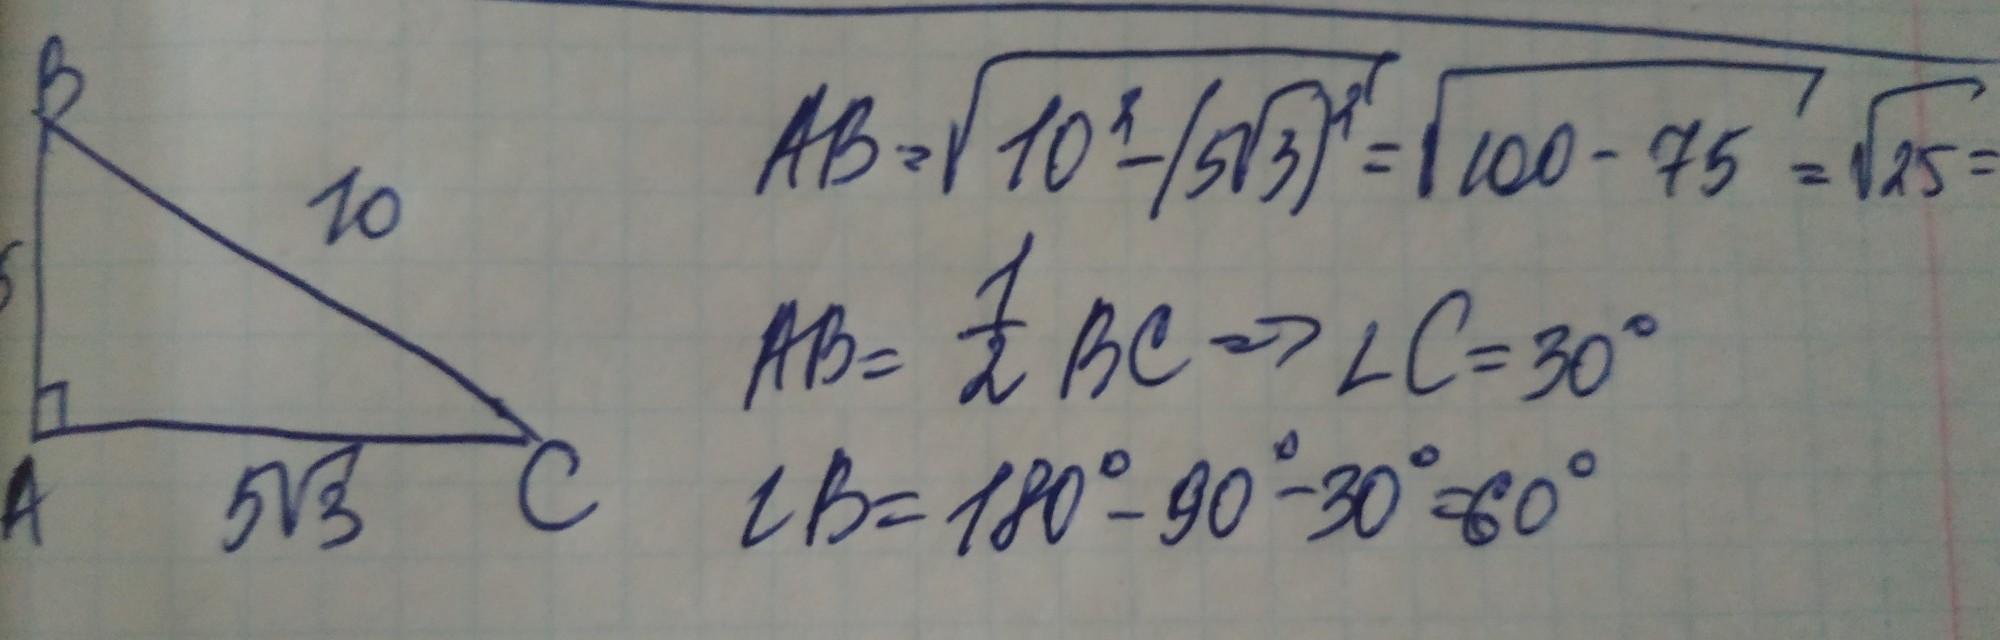 B
10
5
A
5√3
C
AB = √(10² - (5√3)²) = √(100 - 75) = √25 =
AB = 1/2 BC => ∠C = 30°
∠B = 180° - 90° - 30° = 60°